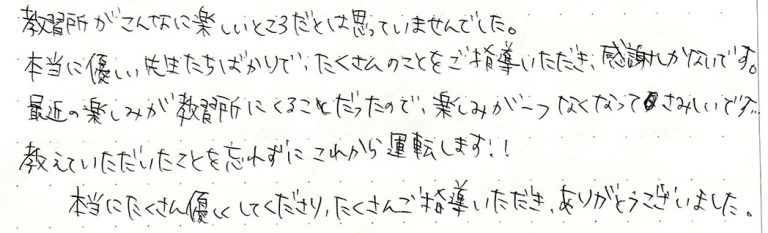 教習所がこんなに楽しいところだとは思っていませんでした。
本当に優しい先生たちばかりで、たくさんのことをご指導いただき、感謝しかないです。
最近の楽しみが教習所にくることだったので、楽しみが一つなくなってさみしいです。
教えていただいたことを忘れずにこれから運転します!!
本当にたくさん優しくしてくださり、たくさんご指導いただき、ありがとうございました。